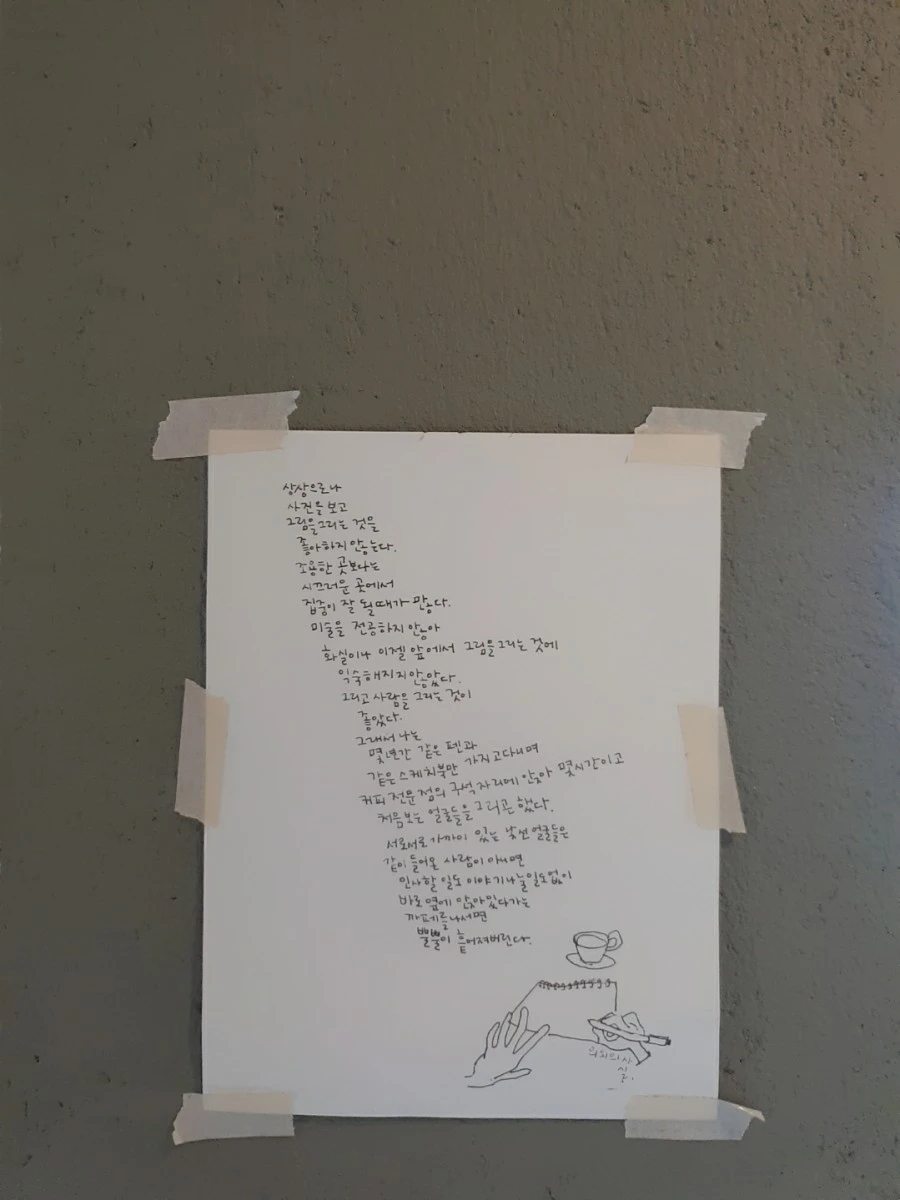 상상으로나
사진을 보고
그림을 그리는 것을
좋아하지 않는다.
조용한 곳보다는
시끄러운 곳에서
집중이 잘 될때가 많다.
미술을 전공하지 않아
화실이나 이젤 앞에서 그림을 그리는 것에
익숙해지지 않았다.
그리고 사람을 그리는 것이
좋았다.
그래서 나는
몇년간 같은 펜과
같은 스케치북만 가지고다니며
커피 전문점의 구석자리에 앉아 몇시간이고
처음보는 얼굴들을 그리곤 했다.
서로서로 가까이 있는 낯선 얼굴들은
같이 들어온 사람이 아니면
인사할 일도 이야기나눌일도없이
바로 옆에 앉아있다가는
까페를 나서면
뿔뿔이 흩어져버린다.
의외의사
실.